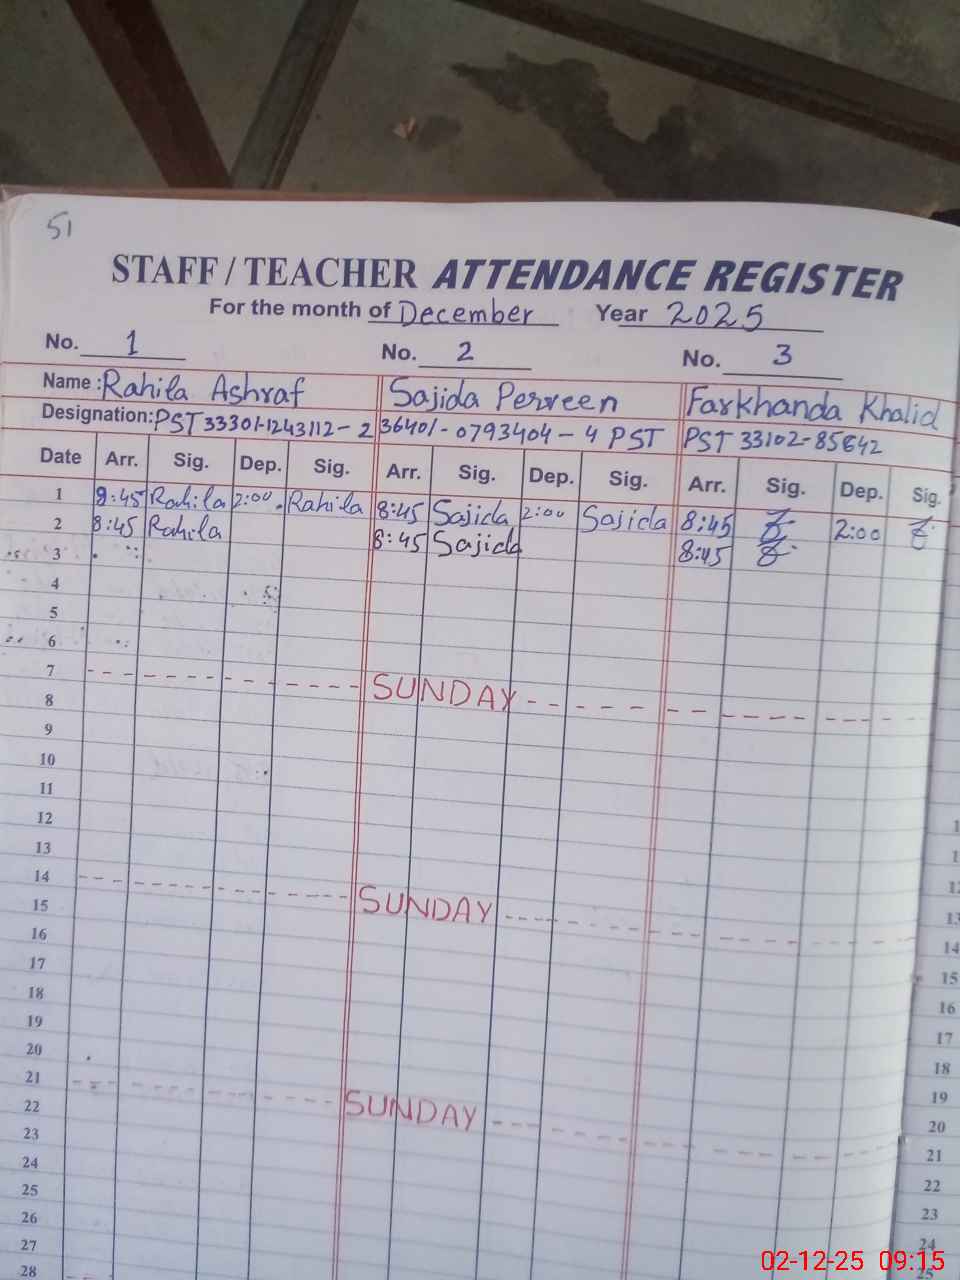 51
STAFF / TEACHER ATTENDANCE REGISTER
For the month of December Year 2025
No. 1 No. 2 No. 3
Name : Rahila Ashraf Sajida Perveen Farkhanda Khalid
Designation: PST 33301-1243112-2 36401-0793404-4 PST PST 33102-85642
Date Arr. Sig. Dep. Sig. Arr. Sig. Dep. Sig. Arr. Sig. Dep. Sig.
1 8:45 Rahila 2:00 Rahila 8:45 Sajida 2:00 Sajida 8:45 2:00
2 8:45 Rahila 8:45 Sajida 8:45
3
4
5
6
7 SUNDAY
8
9
10
11
12
13
14 SUNDAY
15
16
17
18
19
20
21 SUNDAY
22
23
24
25
26
27
28
13
14
15
16
17
18
19
20
21
22
23
24
02-12-25 09:15